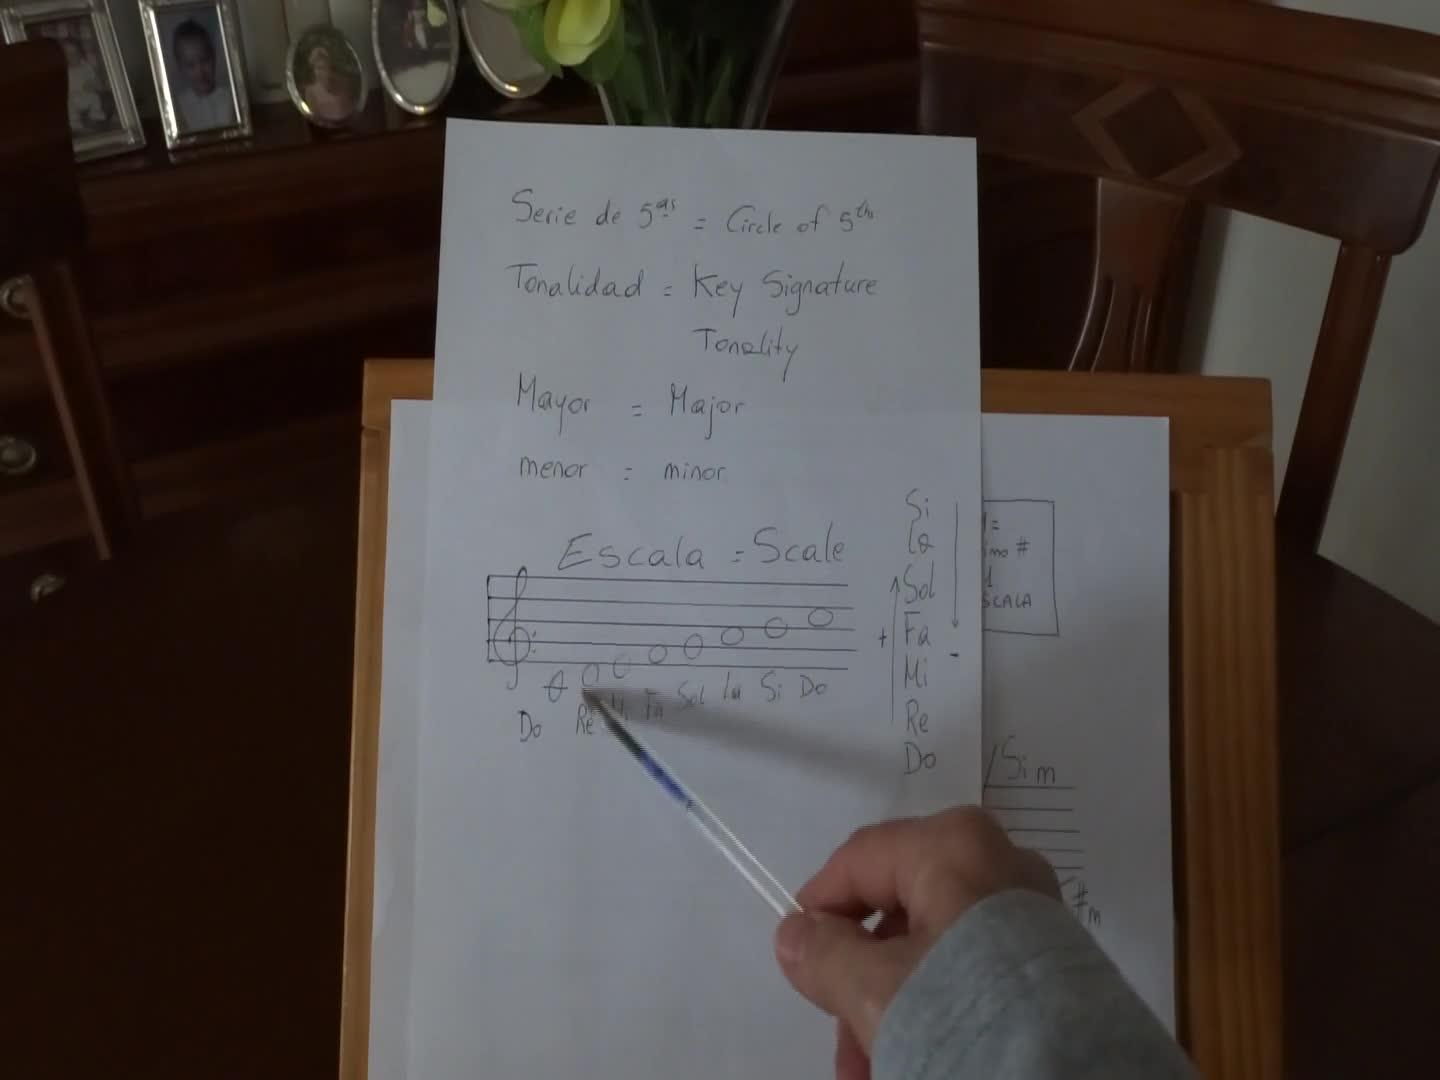 Serie de 5as = Circle of 5th
Tonalidad = Key Signature
Tonality
Mayor = Major
menor = minor
Escala = Scale
Do Re Mi Fa Sol la Si Do
Si
la
Sol
+ Fa
Mi -
Re
Do
#
1
/Sim
#m